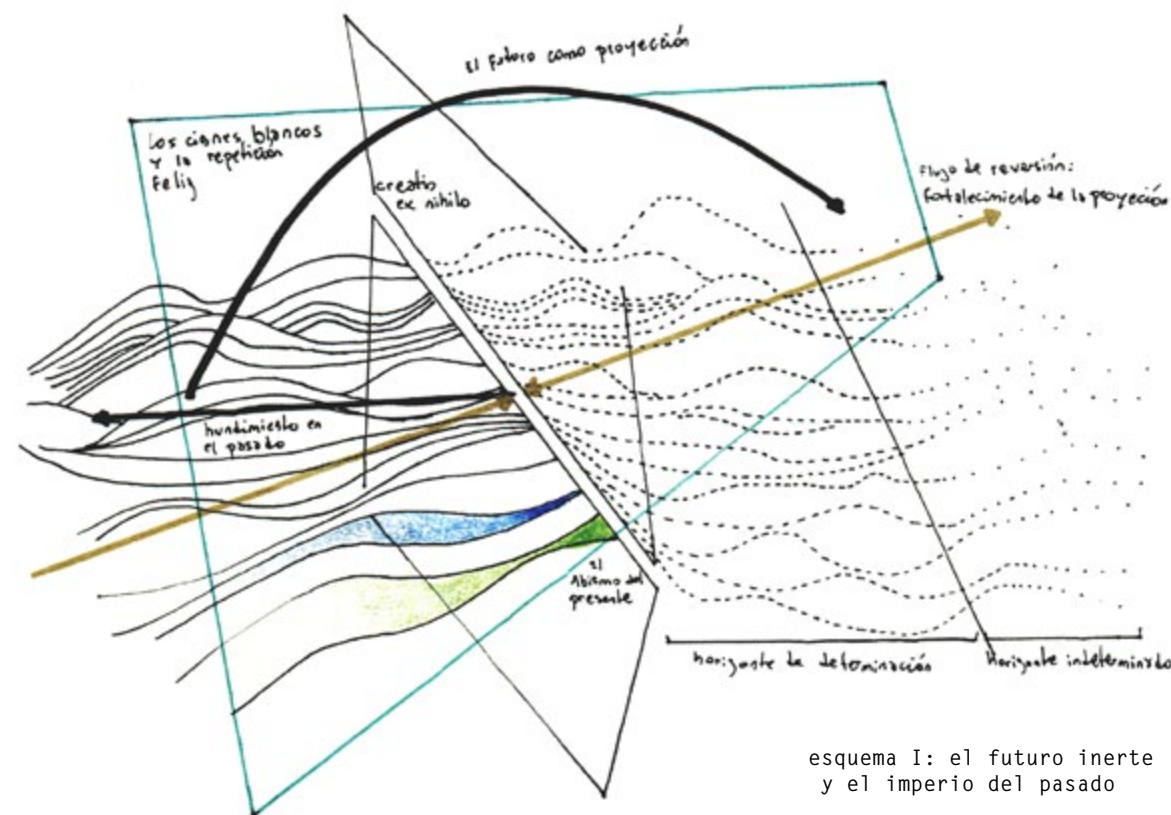 El Futuro como proyección
Los cisnes blancos
y la repetición
Feliz
creatio
ex nihilo
Flujo de reversión:
fortalecimiento de la proyección
hundimiento en
el pasado
El
Abismo del
presente
horizonte de determinación
horizonte indeterminado
esquema I: el futuro inerte
y el imperio del pasado